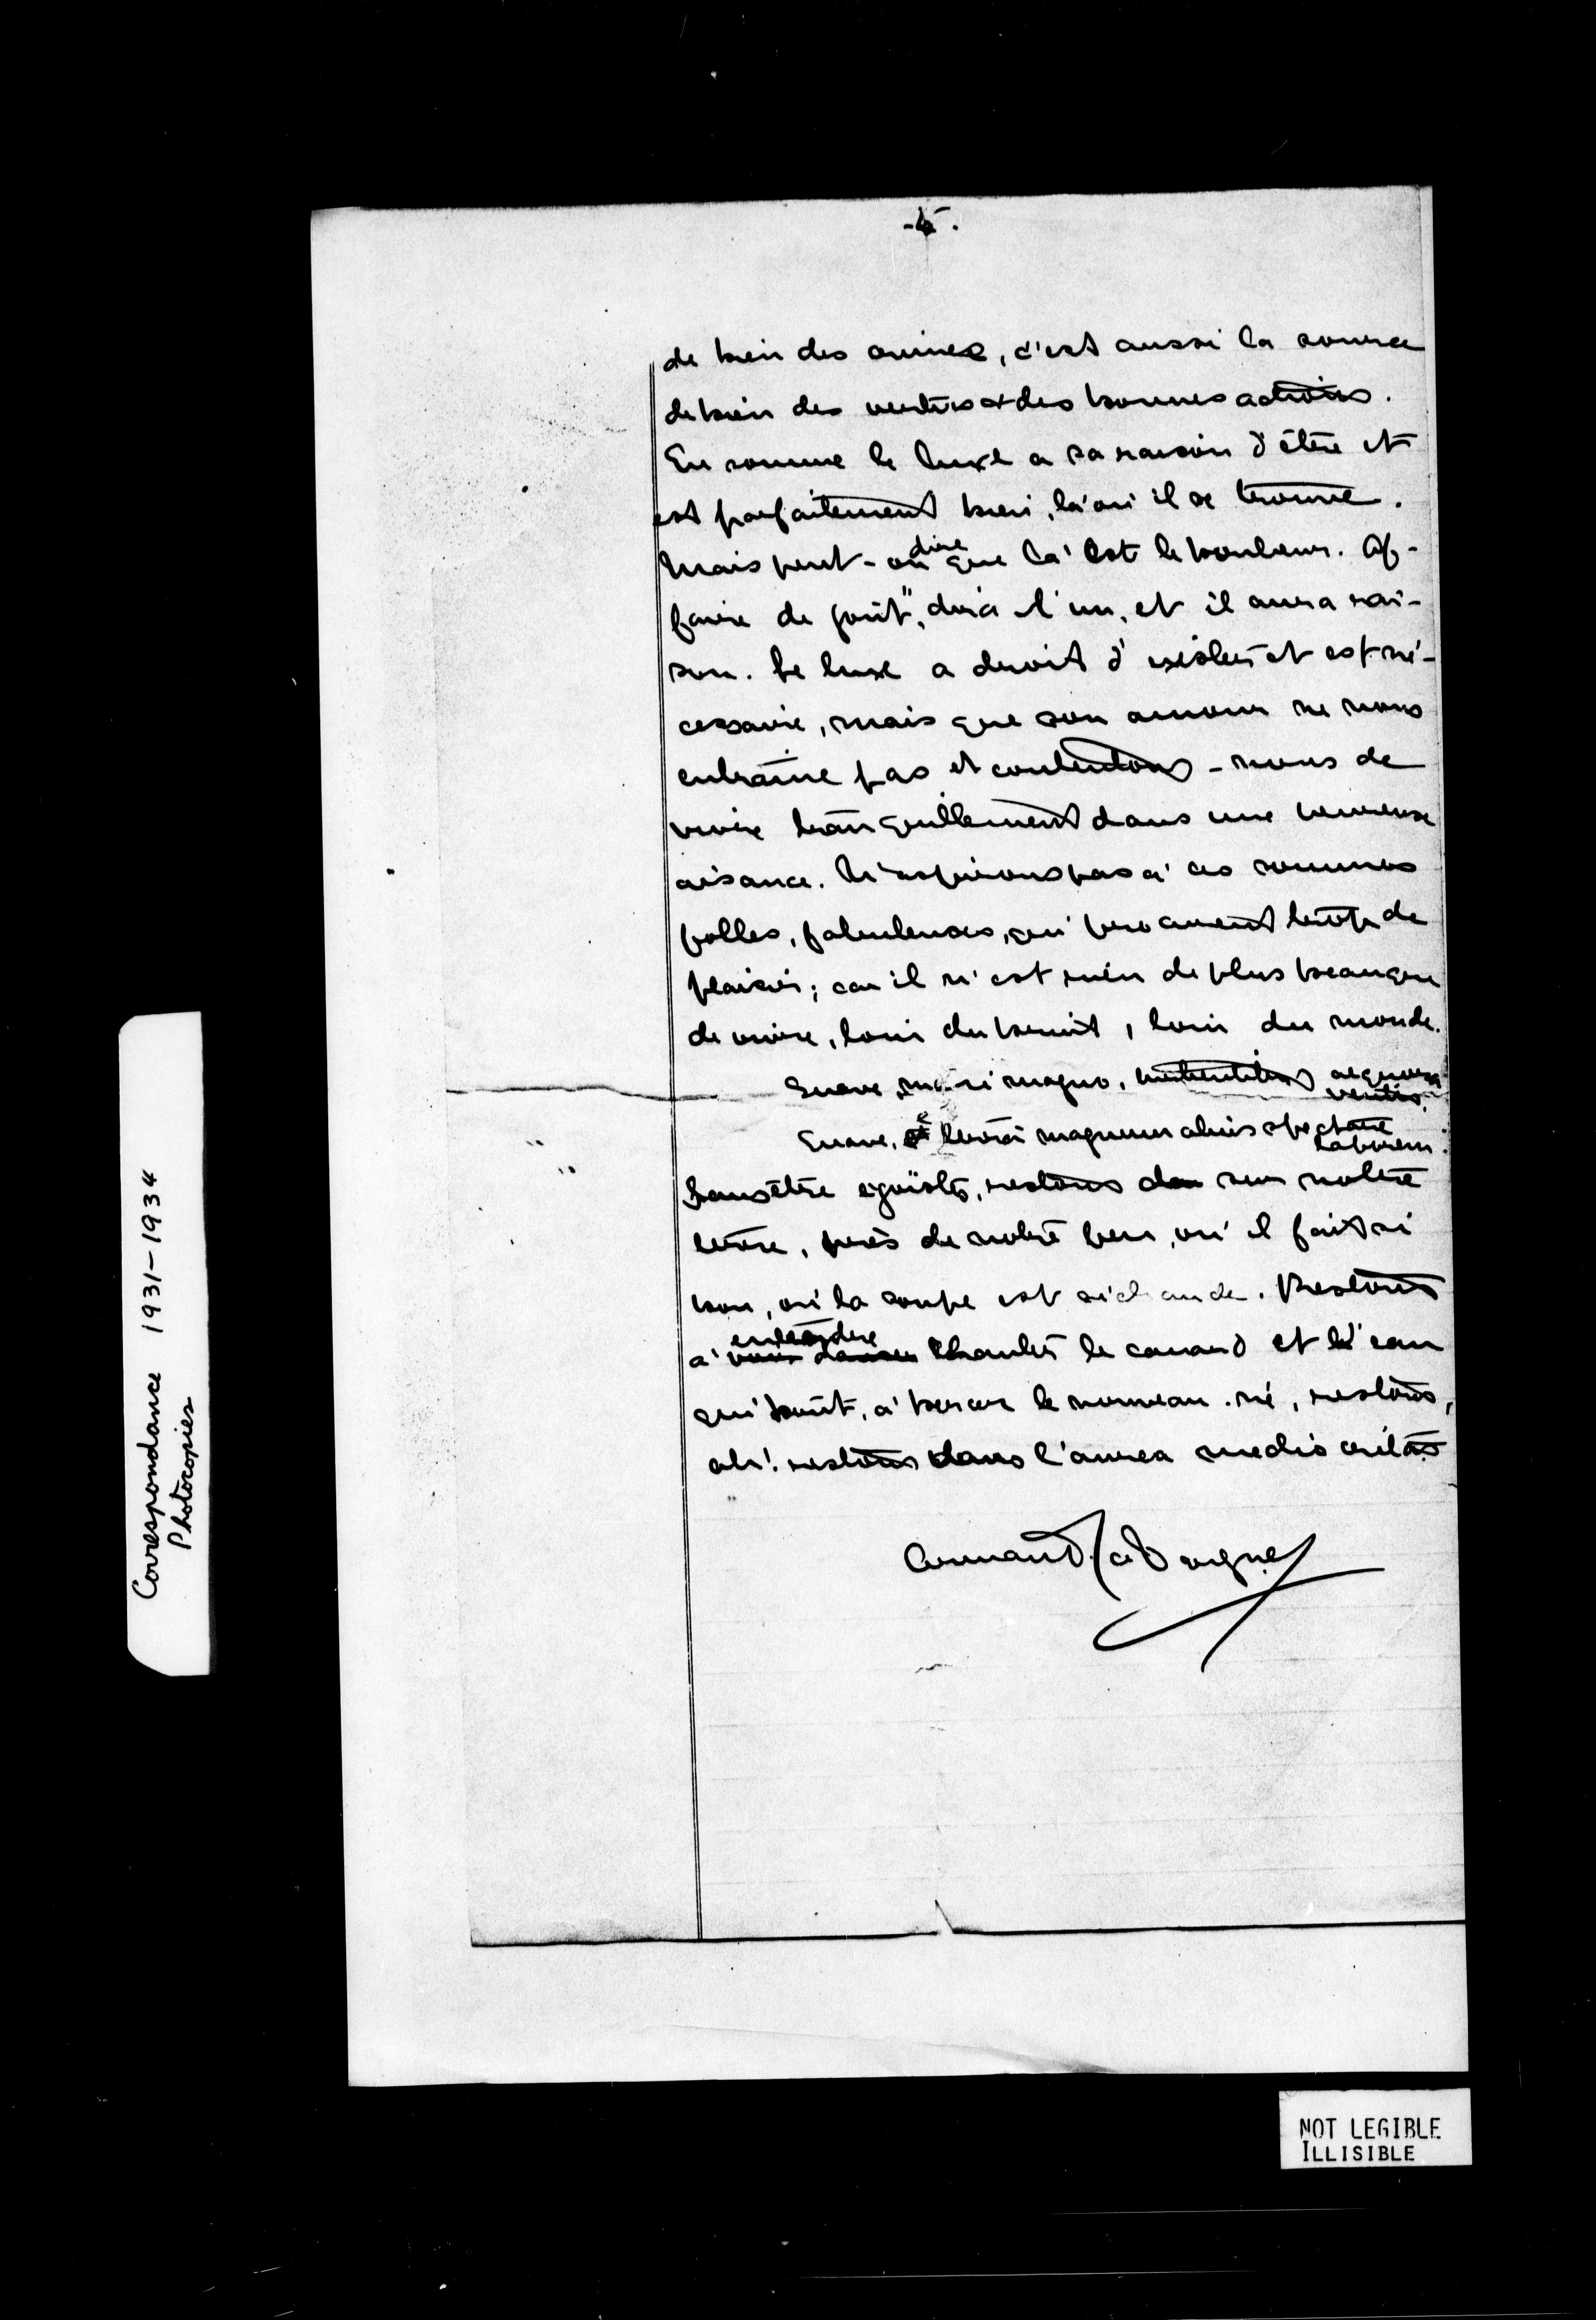 de bien des crimes, c'est aussi la source
de bien des vertus & des bonnes actions.
En somme le luxe a sa raison d'être et
est parfaitement bien, là où il se trouve.
Mais peut-on dire que là est le bonheur. Af-
faire de goût", dira l'un, et il aura rai-
son. Le luxe a droit d'exister et est né-
cessaire, mais que son amour ne nous
entraîne pas et contentons-nous de
vivre tranquillement dans une heureuse
aisance. N'aspirons pas à ces sommes
folles, fabuleuses, qui procurent trop de
plaisir; car il n'est rien de plus beau que
de vivre, loin du bruit, loin du monde.
Suave, mari magno, turbantibus aequora
ventis,
Suave, e terrâ magnum alius spectare
laborem.
Sans être egoïste, restons sur notre
terre, près de notre feu, où il fait si
bon, où la soupe est si chaude. Restons
à entendre chanter le canard et l'eau
qui bout, à bercer le nouveau-né, restons,
ah! restons dans l'aurea mediocritas
Armand LaVergne
Correspondance 1931-1934
Photocopies
NOT LEGIBLE
ILLISIBLE